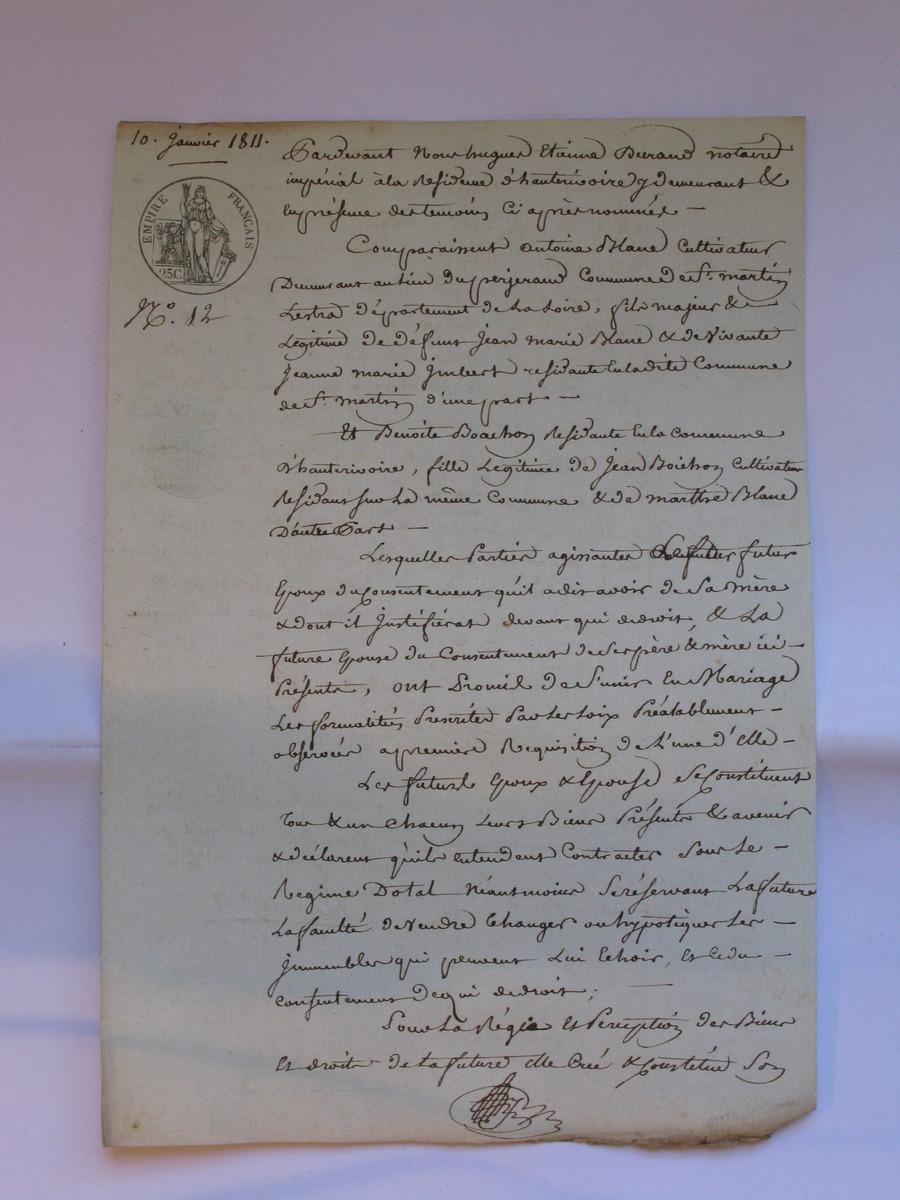 10. Janvier 1811.
EMPIRE FRANÇAIS
25C.
N.o 12
Pardevant Nous hugues Etienne Durand notaire
impérial à la Residence d'hauterivoire y demeurant &
En présence des temoins Ci après nommés —
Comparaissent antoine Blanc Cultivateur
Demeurant au lieu du perjerand Commune de St. martin
Lestra département de La Loire, fils majeur &
Legitime de défunt Jean marie Blanc & de Vivante
Jeanne marie Jmbert residante En ladite Commune
de St. martin d'une part —
Et Benoite Boachon Residante En la Commune
d'hauterivoire, fille Legitime de Jean Boichon Cultivateur
Residant sur La même Commune & de marthe Blanc
D'autre Part —
Lesquelles Parties agissantes Le futur
Epoux du Consentement qu'il a dit avoir de Sa mère
& dont il Justifierat devant qui de droit, & La
future Epouse du Consentement de Ses père & mère ici
Présents, ont Promis de S'unir En Mariage
Les formalités Prescrites Par Les Loix Préalablement —
observées a première Requisition de L'une d'Elle —
Les futurs Epoux & Epouse Se Constituent
Tous & un Chacun Leurs Biens Présents & avenir
& déclarent qu'ils entendent Contracter Sous Le —
Regime Dotal Néantmoins Se réservant La future
La faculté de Vendre Echanger ou hypotiquer Les —
Jmmeubles qui peuvent Lui Echoir, Et Cedu —
Consentement de qui de droit; —
Pour La Régie Et Perception des Biens
Et droits de La future elle Créé & Constitue Son